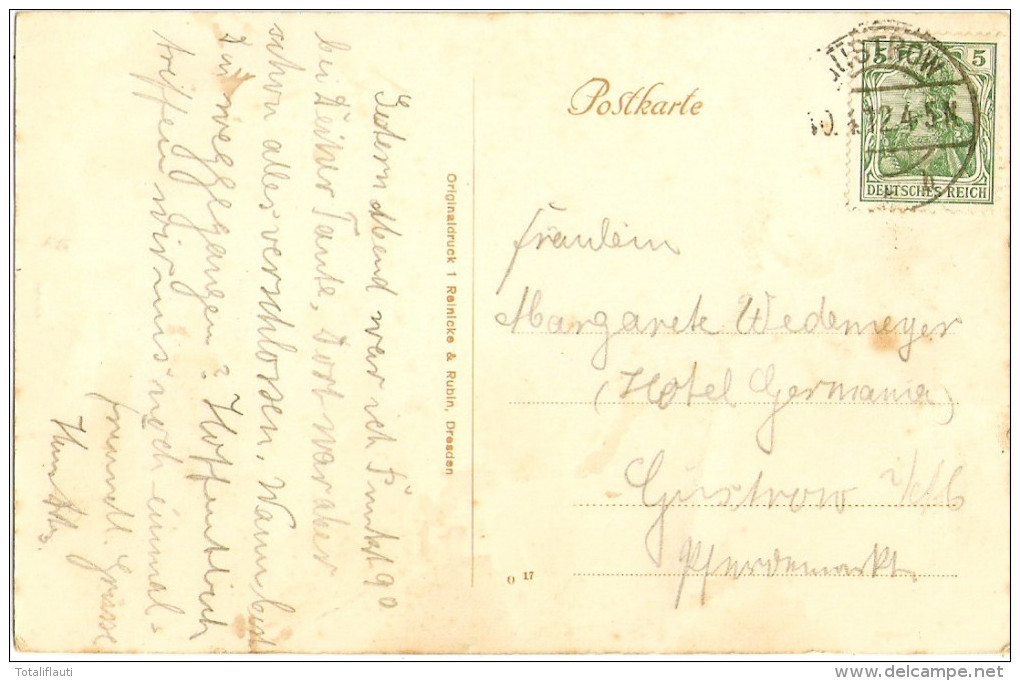 Gestern Abend war ich Punkt 9°
bei Deiner Tante, Dort war aber
schon alles verschlossen. Wann bist
Du weggegangen? Hoffentlich
treffen wir uns noch einmal.
freundl. Grüsse
Originaldruck 1 Reinicke & Rubin, Dresden
0 17
Postkarte
5 5
DEUTSCHES REICH
GÜSTROW
10.4.12.4-5N
Fräulein
Margarete Wedemeyer
(Hotel Germania)
Güstrow i/Mb
Pferdemarkt.
Totaliflauti
http://www.delcampe.net